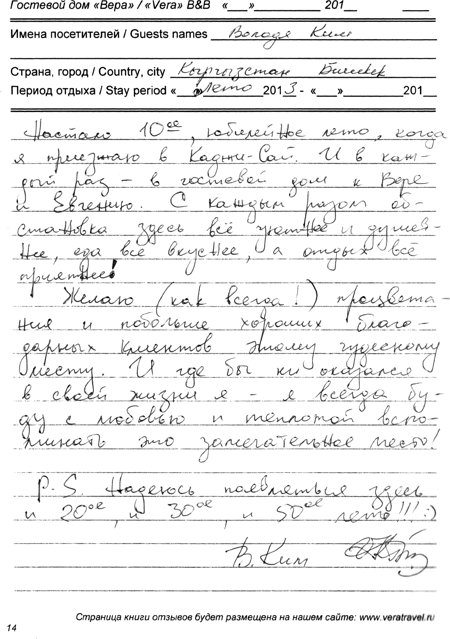 Гостевой дом «Вера» / «Vera» B&B «___»__________ 201__
Имена посетителей / Guests names Володя Ким
Страна, город / Country, city Кыргызстан Бишкек
Период отдыха / Stay period «___» лето 2013 - «___»__________ 201__
Настало 10ое, юбилейное лето, когда
я приезжаю в Каджи-Сай. И в каж-
дый раз – в гостевой дом к Вере
и Евгению. С каждым разом об-
становка здесь всё уютнее и душев-
нее, еда всё вкуснее, а отдых всё
приятнее!
Желаю (как всегда!) процвета-
ния и побольше хороших благо-
дарных клиентов этому чудесному
месту. И где бы ни оказался
в своей жизни я – я всегда бу-
ду с любовью и теплотой вспо-
минать это замечательное место!
P.S. Надеюсь появляться здесь
и 20ое, и 30ое, и 50ое лето!!! :)
В. Ким
Страница книги отзывов будет размещена на нашем сайте: www.veratravel.ru
14